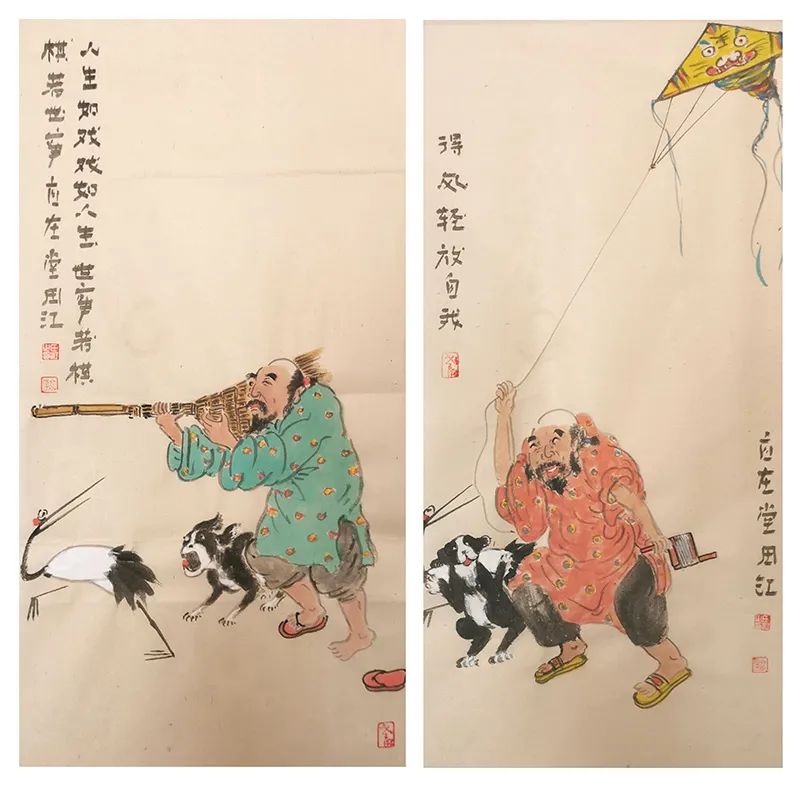 人生如戏戏如人生世事若棋
棋若世事应左堂周江
得风轻放自我
应左堂周江